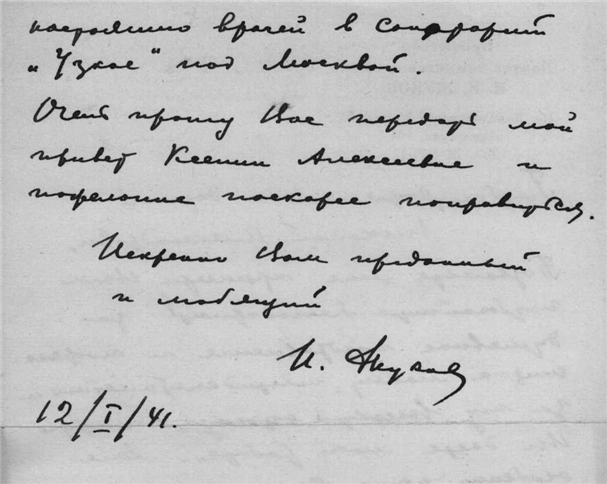 настоянию врачей в санаторий
„Узкое" под Москвой.
Очень прошу Вас передать мой
привет Ксении Алексеевне и
пожелание поскорее поправиться.
Искренно Вам преданный
и любящий
И.
12/I/41.